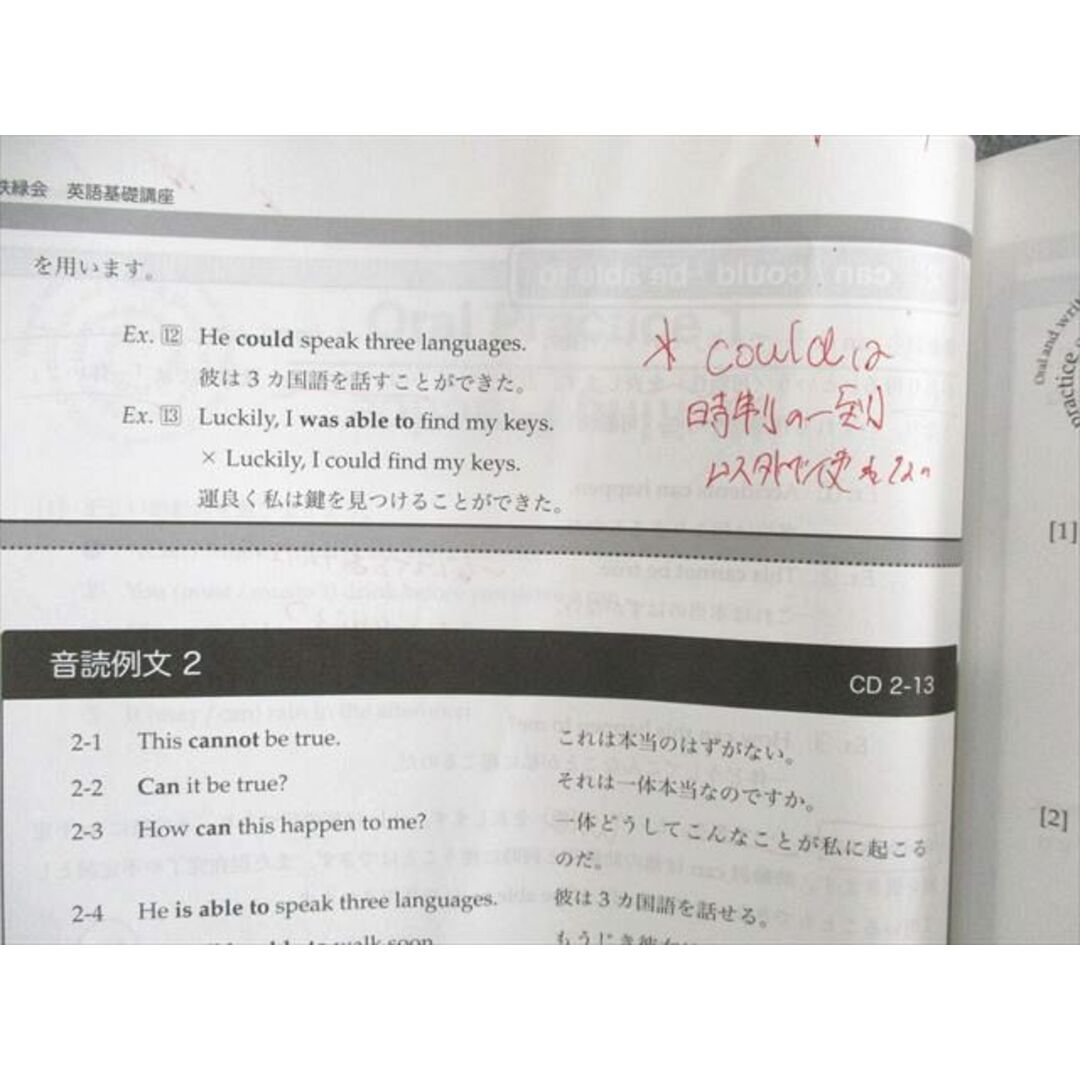 鉄緑会 英語基礎講座
を用います。
Ex. ⑫ He could speak three languages.
彼は 3 カ国語を話すことができた。
Ex. ⑬ Luckily, I was able to find my keys.
× Luckily, I could find my keys.
運良く私は鍵を見つけることができた。
* couldは
時制の一致
以外で使えない
音読例文 2
CD 2-13
2-1 This cannot be true. これは本当のはずがない。
2-2 Can it be true? それは一体本当なのですか。
2-3 How can this happen to me? 一体どうしてこんなことが私に起こる
のだ。
2-4 He is able to speak three languages. 彼は 3 カ国語を話せる。
walk soon
もうじき彼女は
Oral and
practice
[1]
[2]